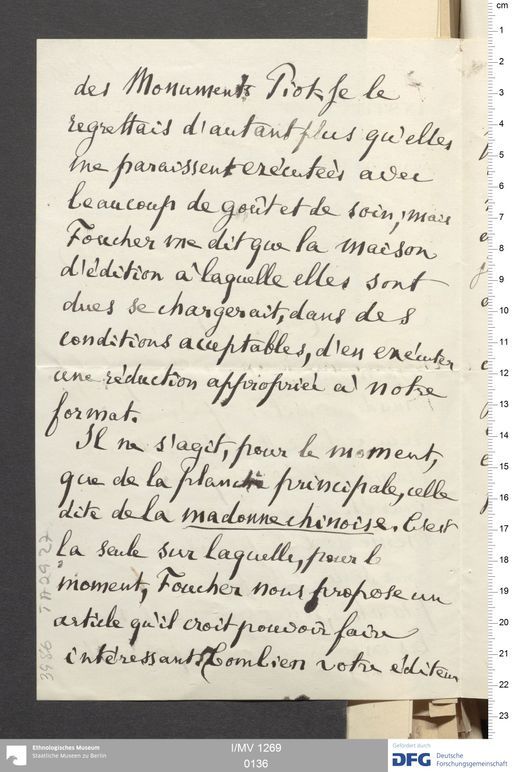 des Monuments Piot. Je le
regrettais d'autant plus qu'elles
me paraissent exécutées avec
beaucoup de goût et de soin; mais
Foucher me dit que la maison
d'édition à laquelle elles sont
dues se chargerait, dans des
conditions acceptables, d'en exécuter
une réduction appropriée à notre
format.
Il ne s'agit, pour le moment,
que de la planche principale, celle
dite de la madonne chinoise. C'est
la seule sur laquelle, pour le
moment, Foucher nous propose un
article qu'il croit pouvoir faire
intéressant. Combien votre éditeur
cm
1
2
3
4
5
6
7
8
9
10
11
12
13
14
15
16
17
18
19
20
21
22
23
Ethnologisches Museum
Staatliche Museen zu Berlin
I/MV 1269
0136
Gefördert durch
DFG Deutsche
Forschungsgemeinschaft